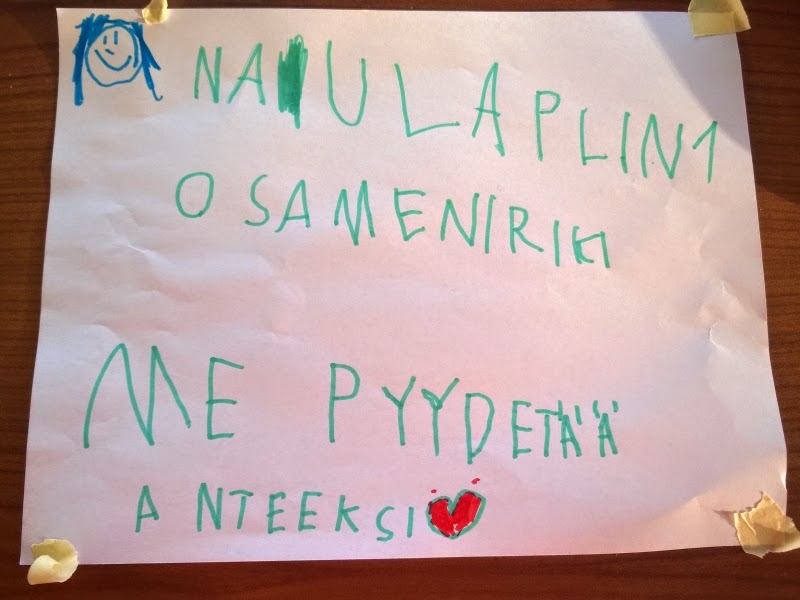 NAULAPLINI
OSAMENIRIKI
ME PYYDETÄÄ
ANTEEKSI